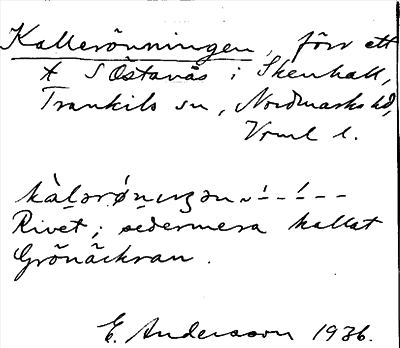 Kallerönningen, förr ett
t S Östanås i Skenhall,
Trankils sn, Nordmarks hd,
Vrml l.
kàlərǿnɩŋən
Rivet; sedermera kallat
Grönåckran.
E. Andersson 1936.